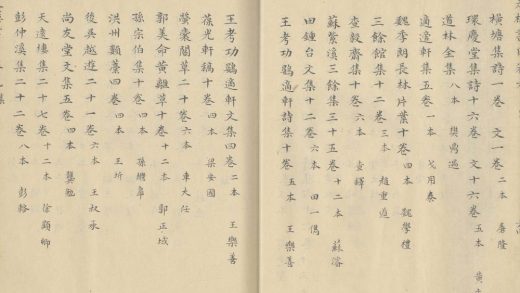 橫塘集詩一卷 文一卷 二本 唐隆
環慶堂集詩十六卷 文十六卷 五本 黃
道林金集 八本 樊
適適軒集五卷 一本 戈用泰
魏季朗長林片葉十卷 四本 魏學禮
三餘館集十二卷 三本 趙重道
查毅齋集十卷 六本 查鐸
蘇紫溪三餘集三十五卷 十二本 蘇濬
田鍾台文集十二卷 六本 田一儁
王考功鷃適軒詩集十卷 五本 王樂善
王考功鷃適軒文集四卷 二本 王樂善
葆光軒稿十卷 四本 梁安國
螢囊閣草二十卷 六本 車大任
郭美命黃離草十卷 十二本 郭正域
孫宗伯集十卷 四本 孫繼皋
洪州類藁四卷 四本 王圻
後吳越遊二十一卷 六本 王叔承
天遠樓集二十七卷 十二本 徐顯卿
尚友堂文集五卷 四本 龔勉
彭仲溪集二十二卷 八本 彭輅